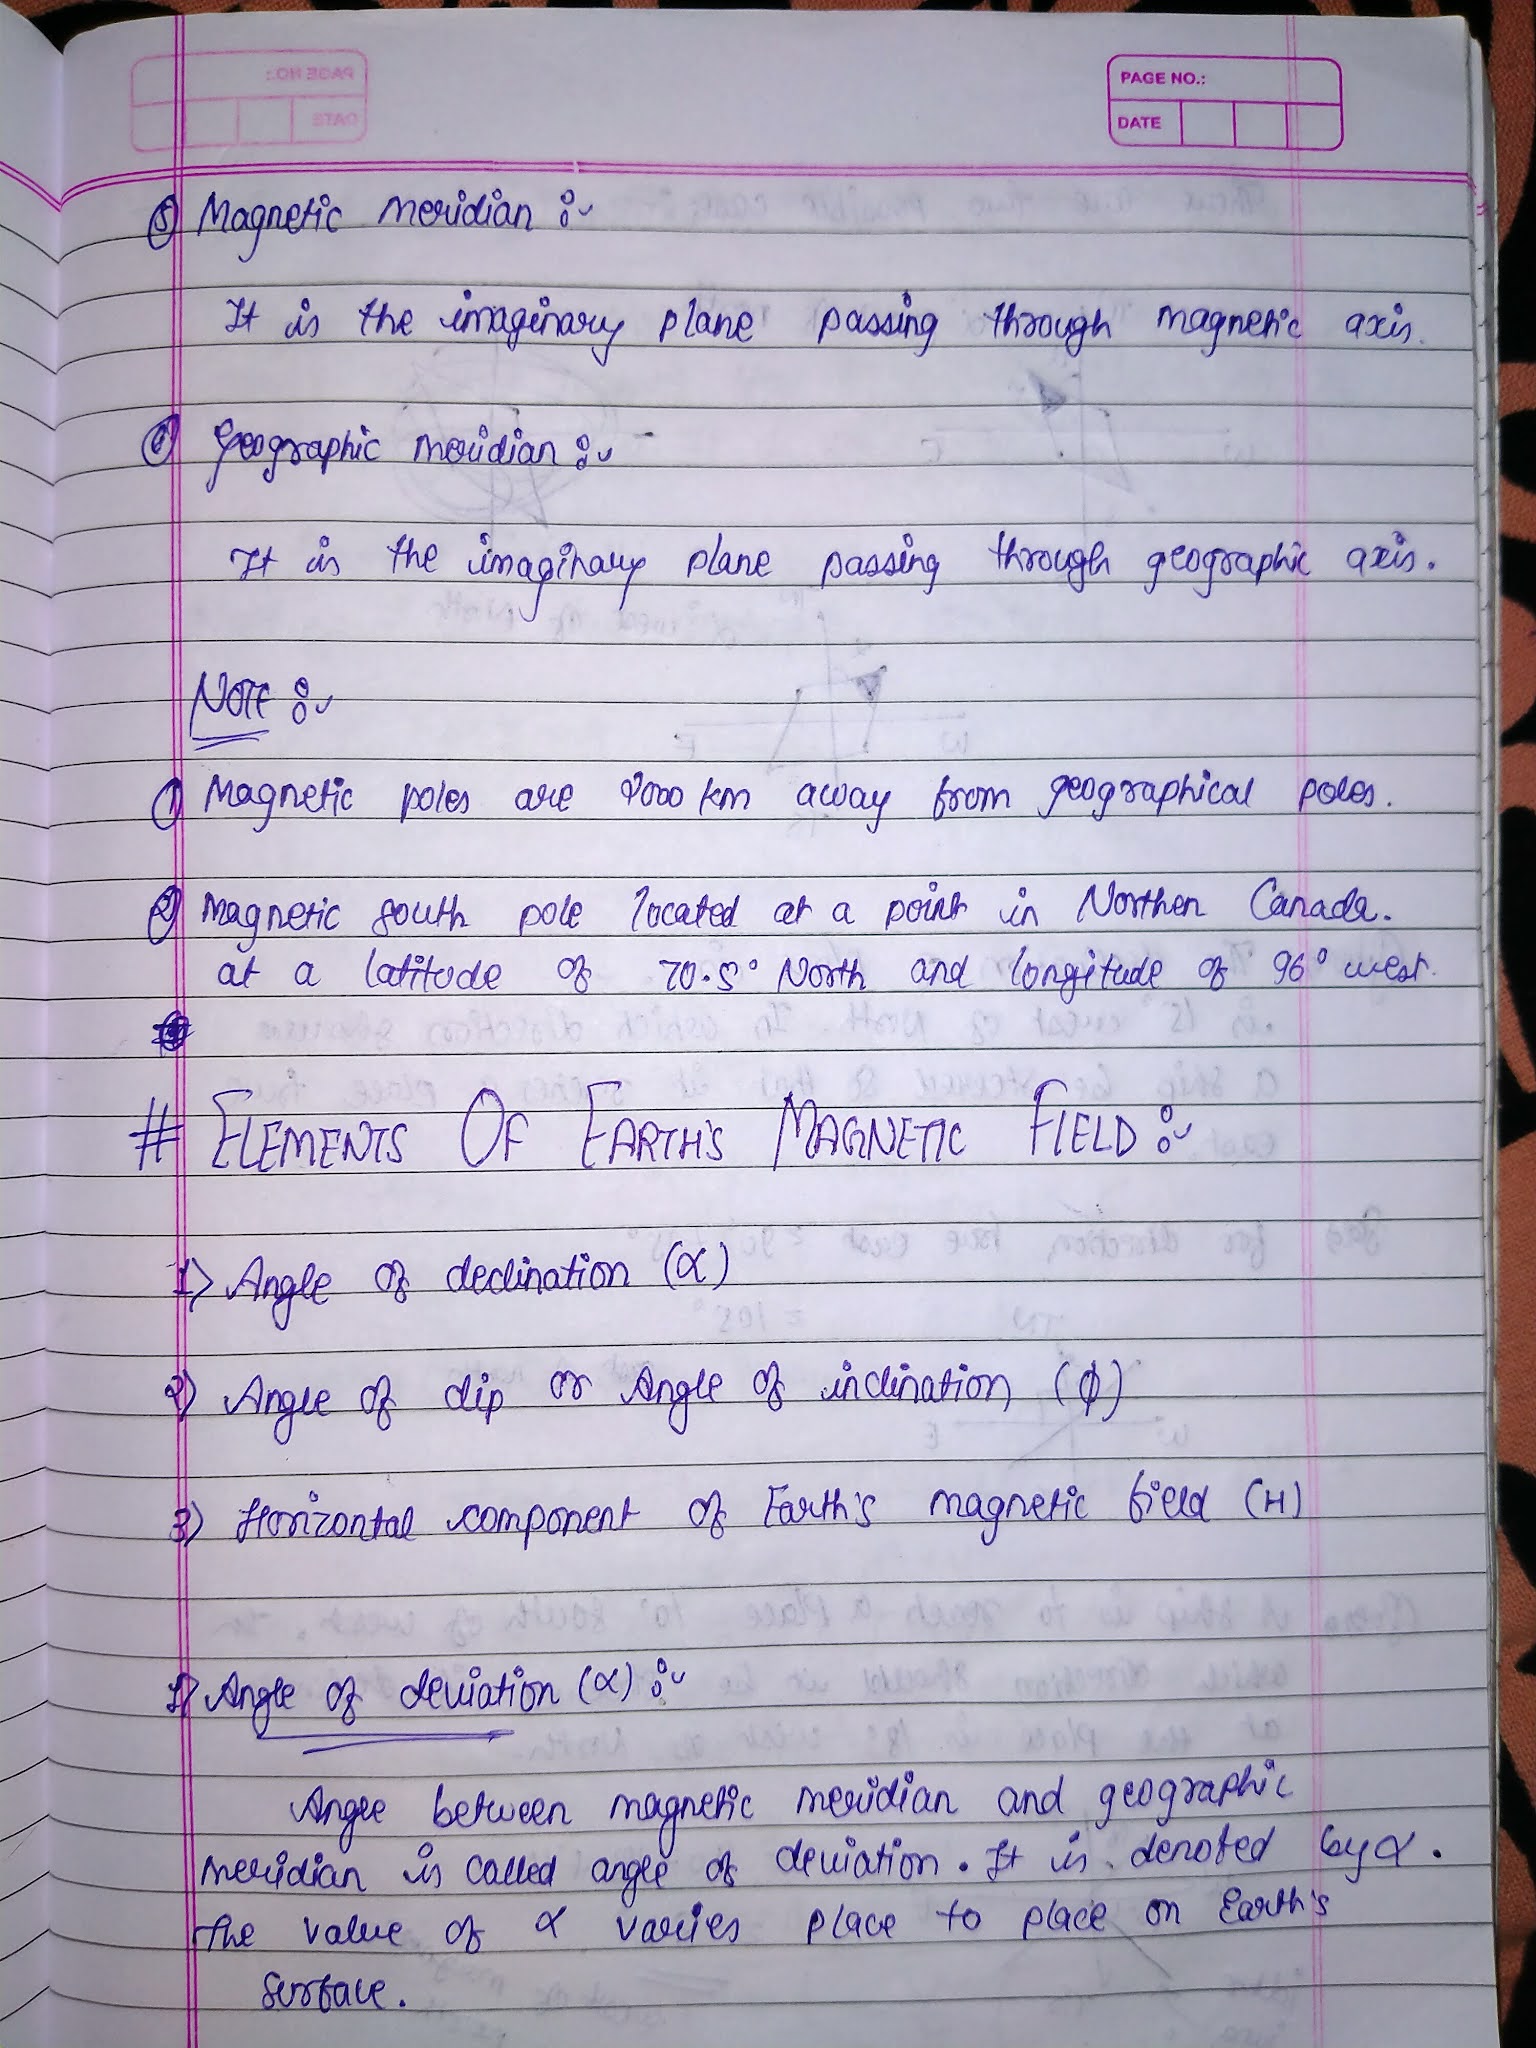 PAGE NO.:
DATE
⑤ Magnetic meridian :-
It is the imaginary plane passing through magnetic axis.
⑥ Geographic meridian :-
It is the imaginary plane passing through geographic axis.
NOTE :-
① Magnetic poles are 2000 km away from geographical poles.
② Magnetic south pole located at a point in Northen Canada.
at a latitude of 70.5° North and longitude of 96° west.
# ELEMENTS OF EARTH'S MAGNETIC FIELD :-
1) Angle of declination (α)
2) Angle of dip or Angle of inclination (ϕ)
3) Horizontal component of Earth's magnetic field (H)
1) Angle of deviation (α) :-
Angle between magnetic meridian and geographic
meridian is called angle of deviation. It is denoted by α.
The value of α varies place to place on Earth's
surface.